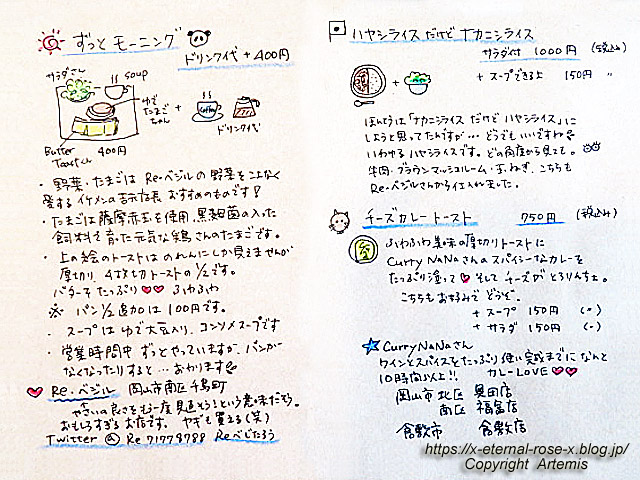 ずっと モーニング
ドリンク代 + 400円
サラダさん
soup
ゆで
たまご
ちゃん
+
Coffee
ドリンク代
Butter
Toastくん
400円
・野菜・たまごは Re・ベジルの 野菜をこよなく
愛する イケメンの 店長 おすすめのものです!
・たまごは 薩摩赤玉を使用、黒麹菌の入った
飼料で 育った 元気な 鶏さんのたまごです。
・上の絵のトーストは のれんにしか見えませんが
厚切り、4すち切トーストの½です。
バターそ たっぷり♡♡ ふわふわ
※ パン½追加は 100円です。
・スープは ゆで大豆入り、コンソメスープです
・営業時間中 ずっとやっていますが、パンが
なくなったりすると… おわります
♡ Re.ベジル 岡山市南区 千鳥町
やさいの良さをもう一度見直そう!という意味だそう。
おもしろすぎるお店です。 ヤギも買える(笑)
Twitter @ Re71779788 Reべじたろう
ハヤシライス だけど ナカニシライス
サラダ付 1000円 (税込み)
+ スープできるよ 150円 〃
+
ほんとうは「ナカニシライス だけど ハヤシライス」に
しようと思ってたんすが… どうでもいいですね
いわゆる ハヤシライスです。どの角度から見ても。
牛肉・ブラウンマッシュルーム・玉ねぎ、こちらも
Re・ベジルさんから仕入れました。
チーズカレートースト 750円 (税込み)
ふわふわ美味の厚切りトーストに
Curry NaNaさんの スパイシーなカレーを
たっぷり塗って♡ そして チーズが とろりんちょ。
こちらも お好みで どうぞ。
+ スープ 150円 (〃)
+ サラダ 150円 (〃)
☆ Curry NaNaさん
ワインとスパイスをたっぷり使い完成までになんと
10時間以上!! カレーLOVE♡♡
岡山市 北区 奥田店
南区 福富店
倉敷市 倉敷店
https://x-eternal-rose-x.blog.jp/
Copyright Artemis